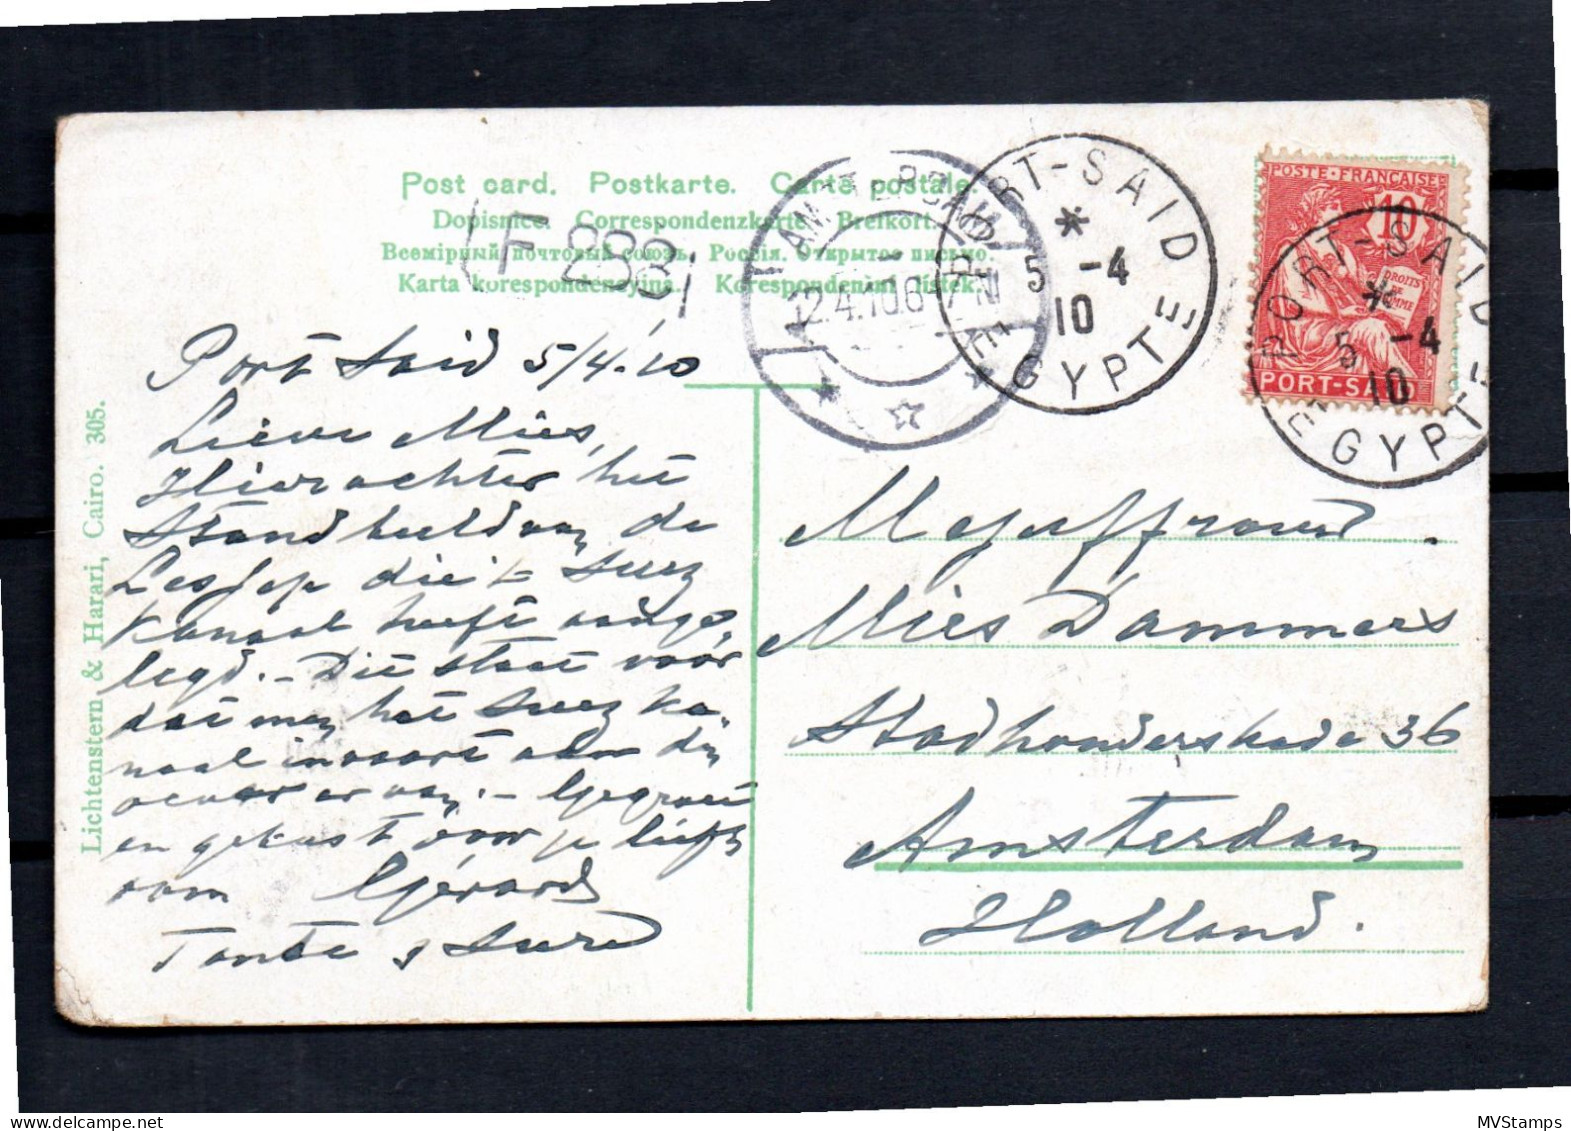 Post card. Postkarte. Carte postale.
Dopisnice. Correspondenzkarte. Brefkort.
Всемірный почтовый союзъ. Россія. Открытое письмо.
Karta korespondencyjna. Korespondenčni listek.
F 288
PORT-SAID
5 -4
10
EGYPTE
12.4.10.6-7N
POSTE·FRANÇAISE
10
DROITS
DE
HOMME
PORT-SAID
PORT-SAID
5 -4
10
EGYPTE
Lichtenstern & Harari, Cairo. 305.
Port Said 5/4.'10
Lieve Mies,
Hierachter het
Standbeeld van de
Lesseps die 't Suez
Kanaal heeft aange,
legd. - Dit staat vóór
dat men het Suez ka,
naal invaart aan den
oever er van. - Gegroet
en gekust door je liefh
oom Gerard
Tante
Mejuffrouw.
Mies Dammers
Stadhouderskade 36
Amsterdam
Holland.
MVStamps